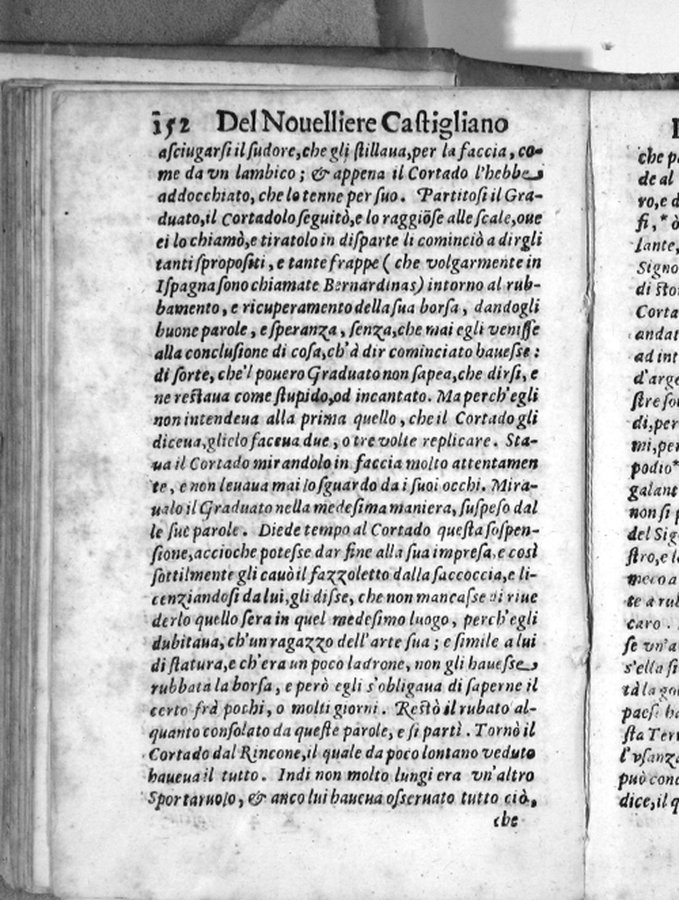 152 Del Nouelliere Castigliano
asciugarsi il sudore, che gli stillaua, per la faccia, co-
me da vn lambico; & appena il Cortado l'hebbe
addocchiato, che lo tenne per suo. Partitosi il Gra-
duato, il Cortado lo seguitò, e lo raggiōse alle scale, oue
ei lo chiamò, e tiratolo in disparte li cominciò a dirgli
tanti spropositi, e tante frappe ( che volgarmente in
Ispagna sono chiamate Bernardinas) intorno al rub-
bamento, e ricuperamento della sua borsa, dandogli
buone parole, e speranza, senza, che mai egli venisse
alla conclusione di cosa, ch'à dir cominciato hauesse:
di sorte, che'l pouero Graduato non sapea, che dirsi, e
ne restaua come stupido, od incantato. Ma perch'egli
non intendeua alla prima quello, che il Cortado gli
diceua, glielo faceua due, o tre volte replicare. Sta-
ua il Cortado mirandolo in faccia molto attentamen
te, e non leuaua mai lo sguardo da i suoi occhi. Mira-
ualo il Graduato nella medesima maniera, suspeso dal
le sue parole. Diede tempo al Cortado questa sospen-
sione, accioche potesse dar fine alla sua impresa, e così
sottilmente gli cauò il fazzoletto dalla saccoccia, e li-
cenziandosi da lui, gli disse, che non mancasse di riue
derlo quello sera in quel medesimo luogo, perch'egli
dubitaua, ch'un ragazzo dell'arte sua; e simile a lui
di statura, e ch'era un poco ladrone, non gli hauesse
rubbata la borsa, e però egli s'obligaua di saperne il
certo frà pochi, o molti giorni. Restò il rubato al-
quanto consolato da queste parole, e si partì. Tornò il
Cortado dal Rincone, il quale da poco lontano veduto
haueua il tutto. Indi non molto lungi era vn'altro
Sportaruolo, & anco lui haueua osseruato tutto ciò,
che
che p
de al
ro, e d
si, * ò
lante,
Signo
di sto
Corta
andat
ad int
d'arge
stre so
di, per
mi, per
podio*
galant
non si p
del Sig
stro, e l
meco a
te a rub
caro.
se vn'a
s'ella si
tà la go
paesi h
sta Ter
l'vsanz
può con
dice, il q